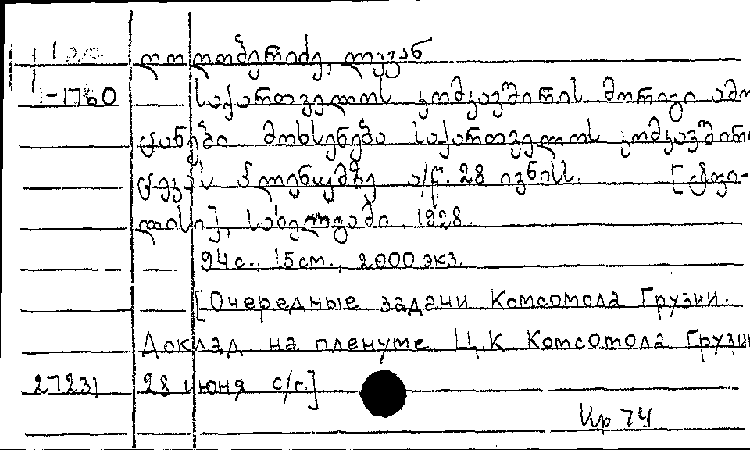 ღოღობერიძე, ლევან
-1760 საქართველოს კომკავშირის მორიგი ამო
ცანები მოხსენება საქართველოს კომკავშირი
ცეკას პლენუმზე ა/წ. 28 ივნისს. [ტფი-
ლისი], სახელგამი, 1928.
94 с., 15 см., 2.000 экз.
[Очередные задачи Комсомола Грузии.
Доклад на пленуме ЦК Комсомола Грузии
27231 28 июня с/г.]
74